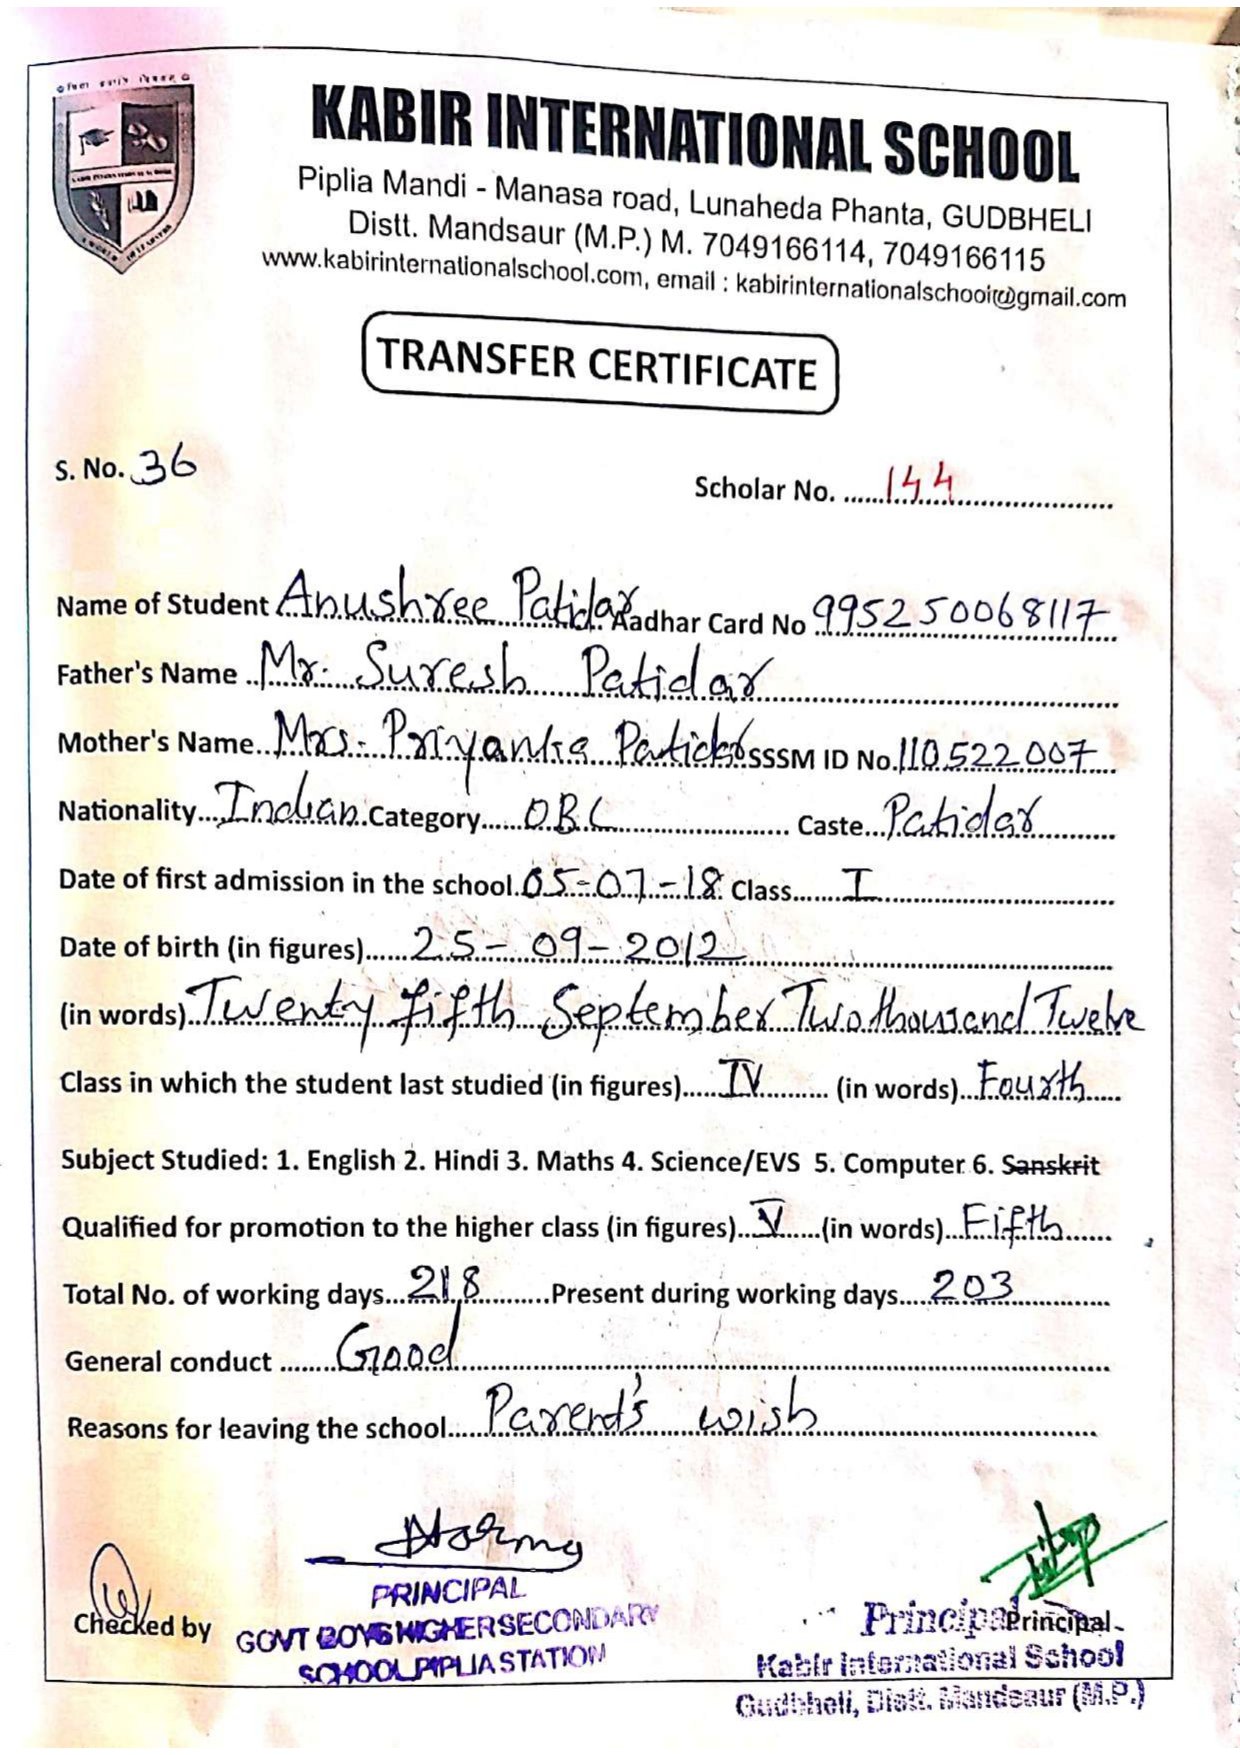 KABIR INTERNATIONAL SCHOOL
Piplia Mandi - Manasa road, Lunaheda Phanta, GUDBHELI
Distt. Mandsaur (M.P.) M. 7049166114, 7049166115
www.kabirinternationalschool.com, email : kabirinternationalschool@gmail.com
KABIR INTERNATIONAL SCHOOL
TRANSFER CERTIFICATE
S. No. 36
Scholar No. 144
Name of Student Anushree Patidar Aadhar Card No 995250068117
Father's Name Mr. Suresh Patidar
Mother's Name Mrs. Priyanka Patidar SSSM ID No. 110522007
Nationality Indian Category OBC Caste Patidar
Date of first admission in the school 05-07-18 Class I
Date of birth (in figures) 25-09-2012
(in words) Twenty fifth September Two thousand Twelve
Class in which the student last studied (in figures) IV (in words) Fourth
Subject Studied: 1. English 2. Hindi 3. Maths 4. Science/EVS 5. Computer 6. Sanskrit
Qualified for promotion to the higher class (in figures) V (in words) Fifth
Total No. of working days 218 Present during working days 203
General conduct Good
Reasons for leaving the school Parent's wish
Checked by
PRINCIPAL
GOVT BOYS HIGHER SECONDARY
SCHOOL PIPLIA STATION
Principal Principal
Kabir International School
Gudbheli, Distt. Mandsaur (M.P.)